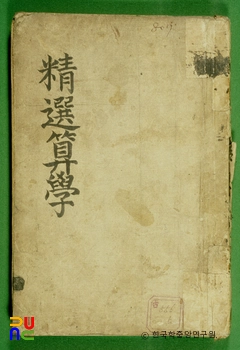 精選算學
ⓒ 한국학중앙연구원